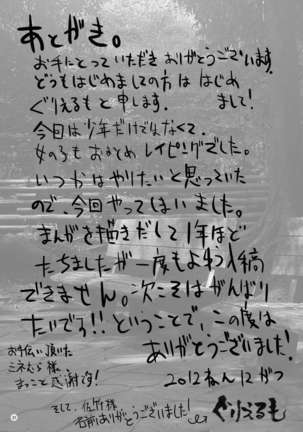 あとがき。
お手にとっていただき ありがとうございます。
どうもはじめましての方は はじめ
ぐりえるもと申します. まして!
今回は少年だけでなくて、
女のろもおまとめ レイピングでした。
いつかはやりたいと思っていた
ので、今回やってしまいました。
まんがを描きだして1年ほど
たちましたが一度もよゆう入稿
できません。次こそはがんばり
たいです!! ということで、この度は
ありがとうございました!
お手伝い頂いた
ミネむら様、
まっこと感謝を!
2012ねん12がつ
そして、佐竹様
名前ありがとうございました!
ぐりえるも